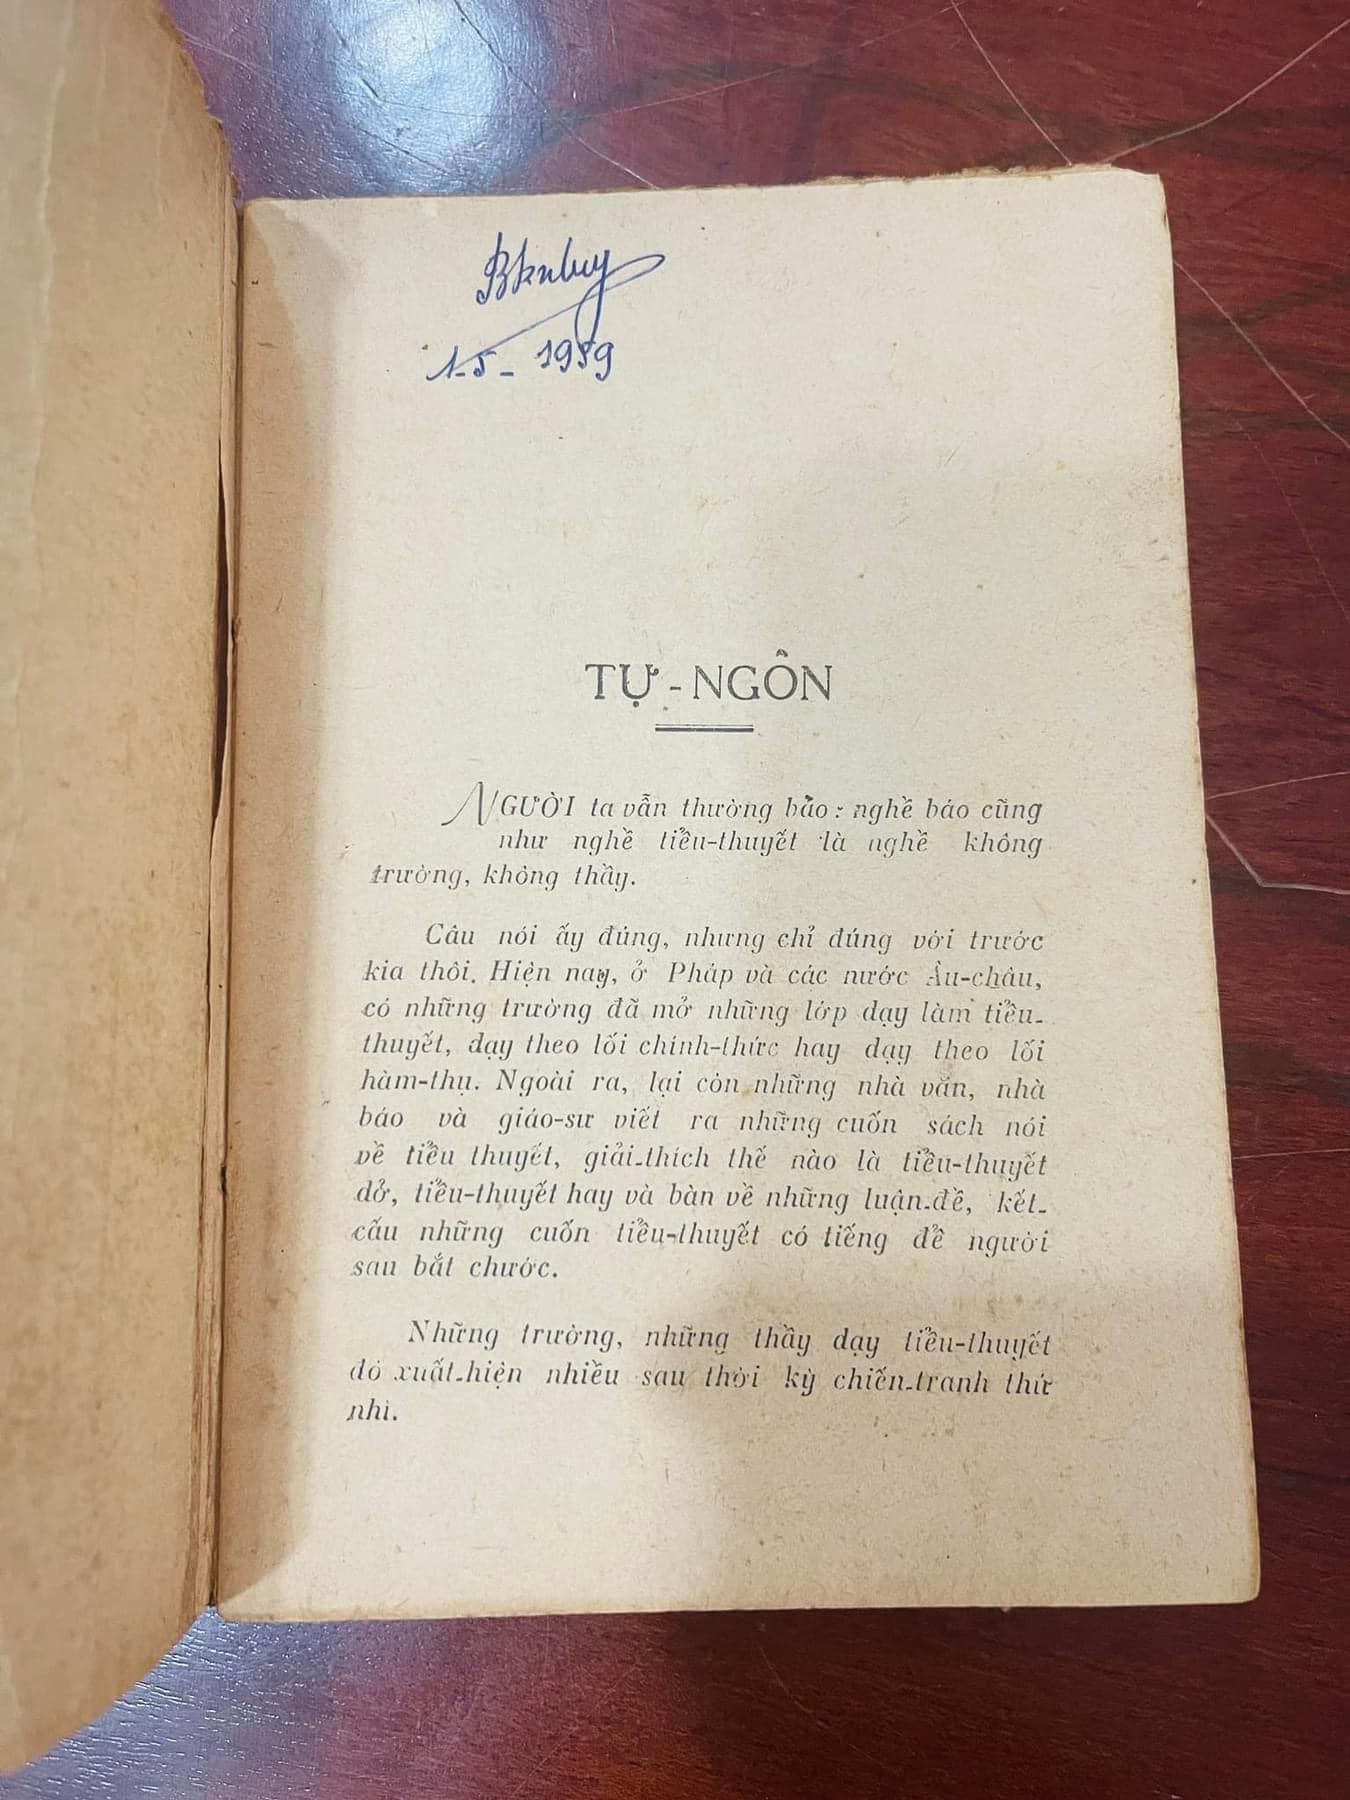 1-5-1959
TỰ-NGÔN
NGƯỜI ta vẫn thường bảo: nghề báo cũng
như nghề tiểu-thuyết là nghề không
trường, không thầy.
Câu nói ấy đúng, nhưng chỉ đúng với trước
kia thôi. Hiện nay, ở Pháp và các nước Âu-châu,
có những trường đã mở những lớp dạy làm tiểu-
thuyết, dạy theo lối chính-thức hay dạy theo lối
hàm-thụ. Ngoài ra, lại còn những nhà văn, nhà
báo và giáo-sư viết ra những cuốn sách nói
về tiểu thuyết, giải-thích thế nào là tiểu-thuyết
dở, tiểu-thuyết hay và bàn về những luận-đề, kết-
cấu những cuốn tiểu-thuyết có tiếng để người
sau bắt chước.
Những trường, những thầy dạy tiểu-thuyết
đó xuất-hiện nhiều sau thời kỳ chiến-tranh thứ
nhì.